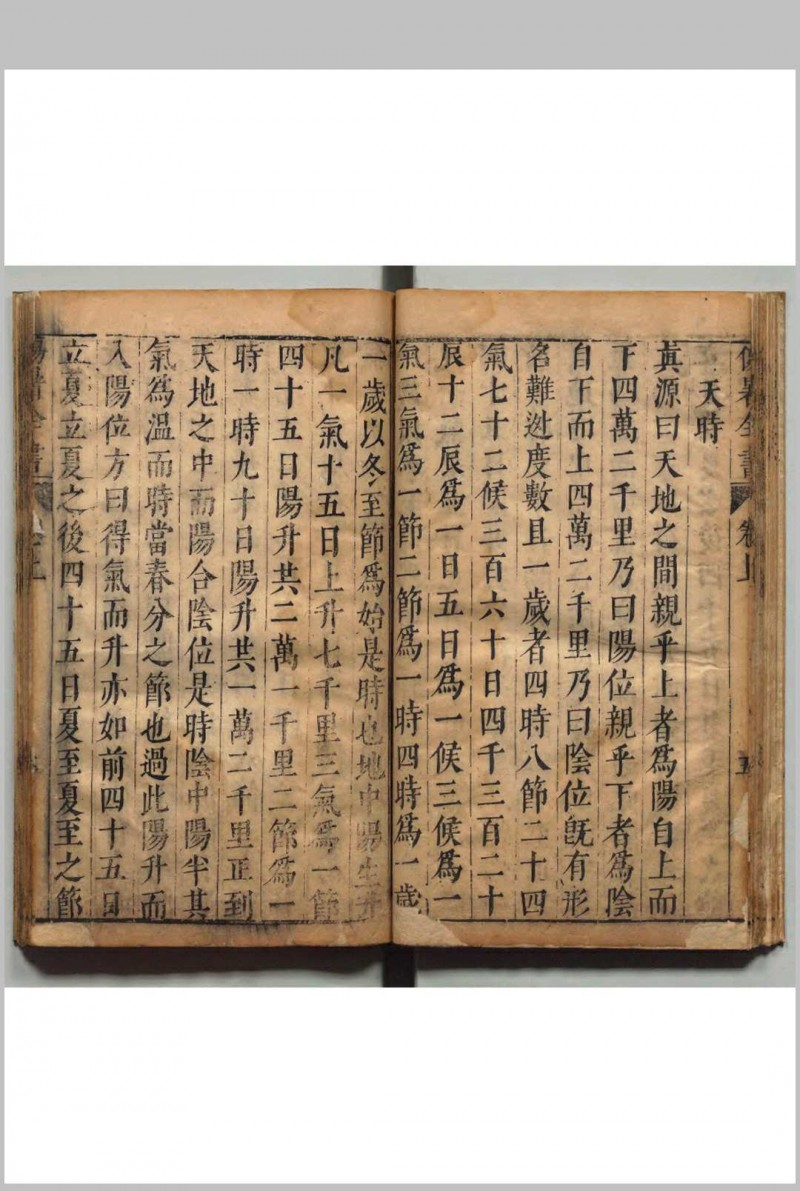 卷上
天時
真源曰天地之間親乎上者為陽自上而
下四萬二千里乃曰陽位親乎下者為陰
自下而上四萬二千里乃曰陰位既有形
名難逃度數且一歲者四時八節二十四
氣七十二候三百六十日四千三百二十
辰十二辰為一日五日為一候三候為一
氣三氣為一節二節為一時四時為一歲
一歲以冬至節為始是時也地中陽生
凡一氣十五日上升七千里三氣為一節
四十五日陽升共二萬一千里二節為一
時一時九十日陽升共一萬二千里正到
天地之中而陽合陰位是時陰中陽半其
氣為溫而時當春分之節也過此陽升而
入陽位方曰得氣而升亦如前四十五日
立夏立夏之後四十五日夏至夏至之節